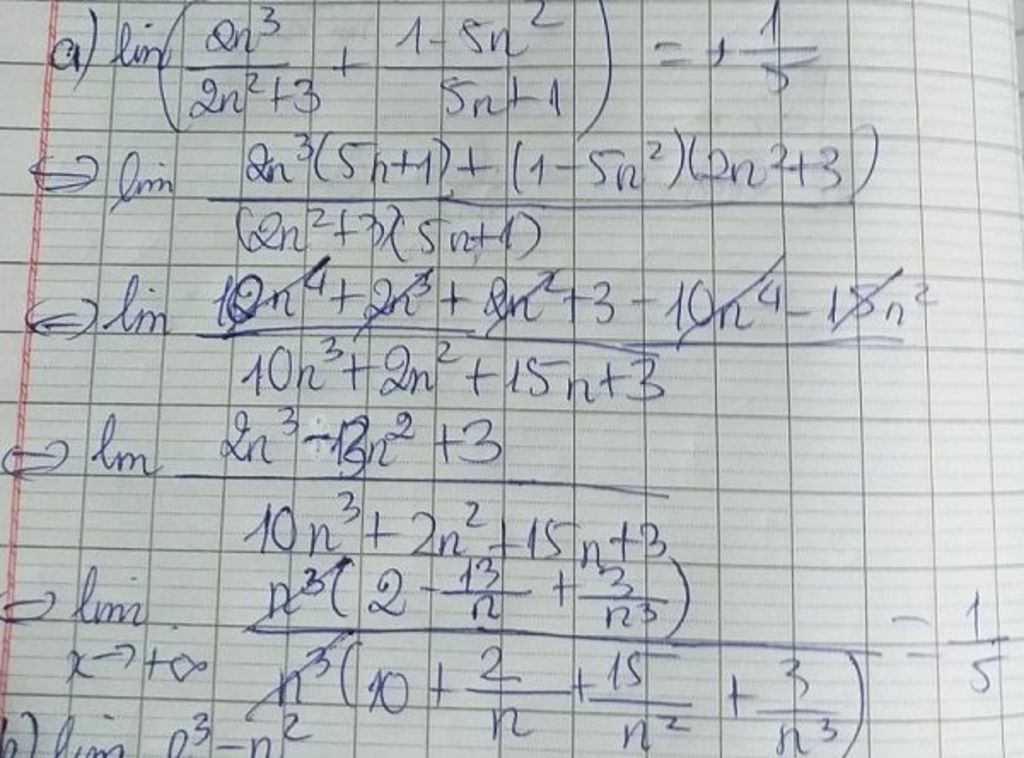 a) lim(2n³/(2n²+3) + (1-5n²)/(5n+1)) = + 1/5
⇔ lim (2n³(5n+1) + (1-5n²)(2n²+3))/((2n²+3)(5n+1))
⇔ lim (10n⁴ + 2n³ + 2n² + 3 - 10n⁴ - 15n²)/(10n³ + 2n² + 15n + 3)
⇔ lim (2n³ - 13n² + 3)/(10n³ + 2n² + 15n + 3)
⇔ lim x→+∞ (n³(2 - 13/n + 3/n³))/(n³(10 + 2/n + 15/n² + 3/n³)) = 1/5
b) lim n³-n²